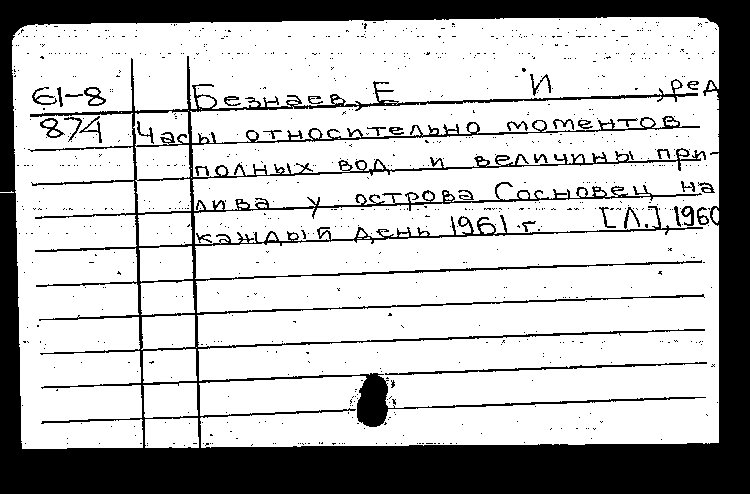 61-8 Безнаев, Е И , ред
874 Часы относительно моментов
полных вод и величины при-
лива у острова Сосновец на
каждый день 1961 г. [Л.], 1960